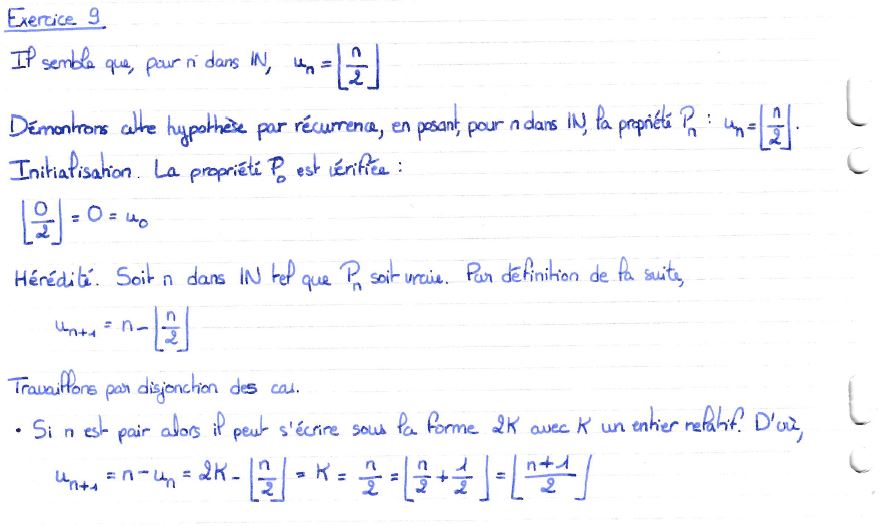 Exercice 9
Il semble que, pour n dans IN, uₙ = ⌊n/2⌋
Démontrons cette hypothèse par récurrence, en posant, pour n dans IN, la propriété Pₙ : uₙ = ⌊n/2⌋.
Initialisation. La propriété P₀ est vérifiée :
⌊0/2⌋ = 0 = u₀
Hérédité. Soit n dans IN tel que Pₙ soit vraie. Par définition de la suite,
uₙ₊₁ = n - ⌊n/2⌋
Travaillons par disjonction des cas.
• Si n est pair alors il peut s'écrire sous la forme 2K avec K un entier relatif. D'où,
uₙ₊₁ = n - uₙ = 2K - ⌊n/2⌋ = K = n/2 = ⌊n/2 + 1/2⌋ = ⌊(n+1)/2⌋